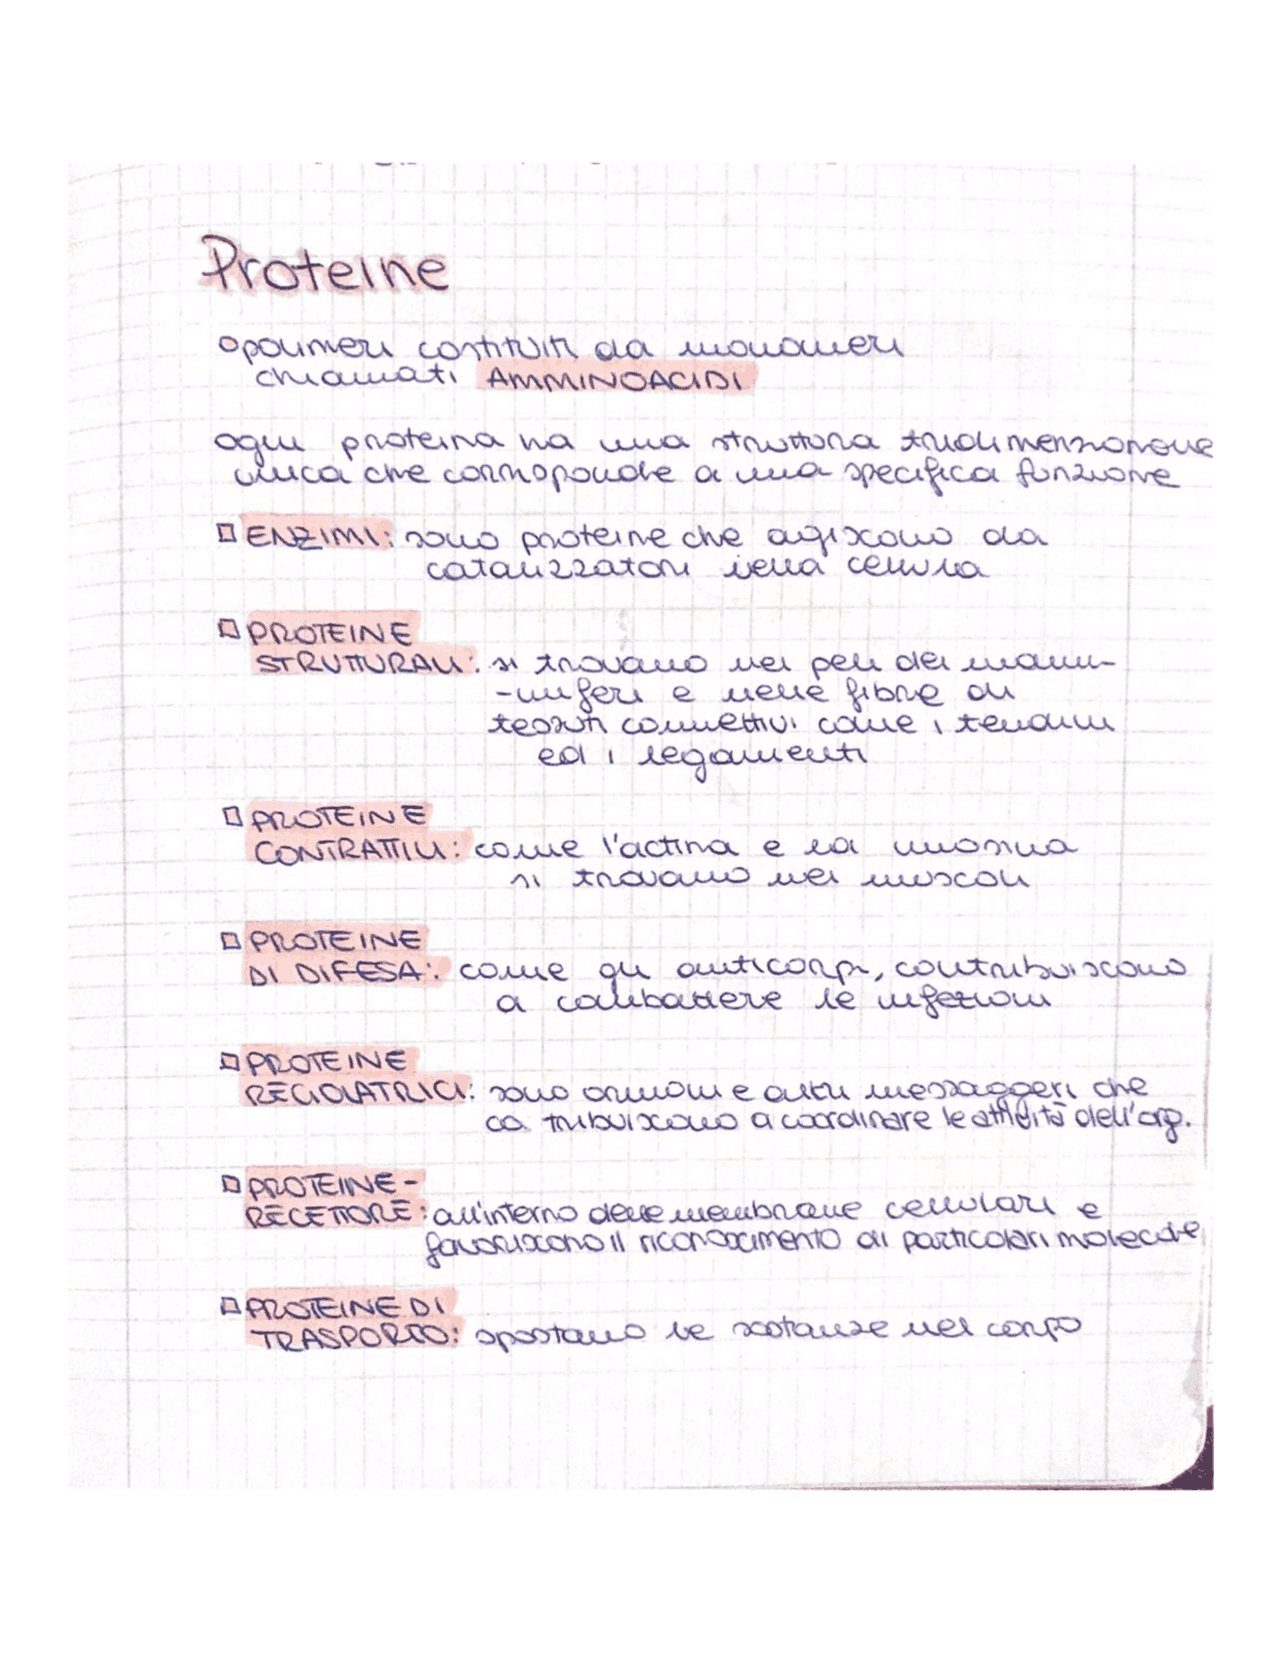 Proteine
polimeri costituiti da monomeri
chiamati AMMINOACIDI
ogni proteina ha una struttura tridimensionale
unica che corrisponde a una specifica funzione
ENZIMI: sono proteine che agiscono da
catalizzatori nella cellula
PROTEINE
STRUTTURALI: si trovano nei peli dei mam-
-miferi e nelle fibre di
tessuti connettivi come i tendini
ed i legamenti
PROTEINE
CONTRATTILI: come l'actina e la miosina
si trovano nei muscoli
PROTEINE
DI DIFESA: come gli anticorpi, contribuiscono
a combattere le infezioni
PROTEINE
REGOLATRICI: sono ormoni e altri messaggeri che
co tribuiscono a coordinare le attività dell'org.
PROTEINE-
RECETTORE: all'interno delle membrane cellulari e
favoriscono il riconoscimento di particolari molecole
PROTEINE DI
TRASPORTO: spostano le sostanze nel corpo